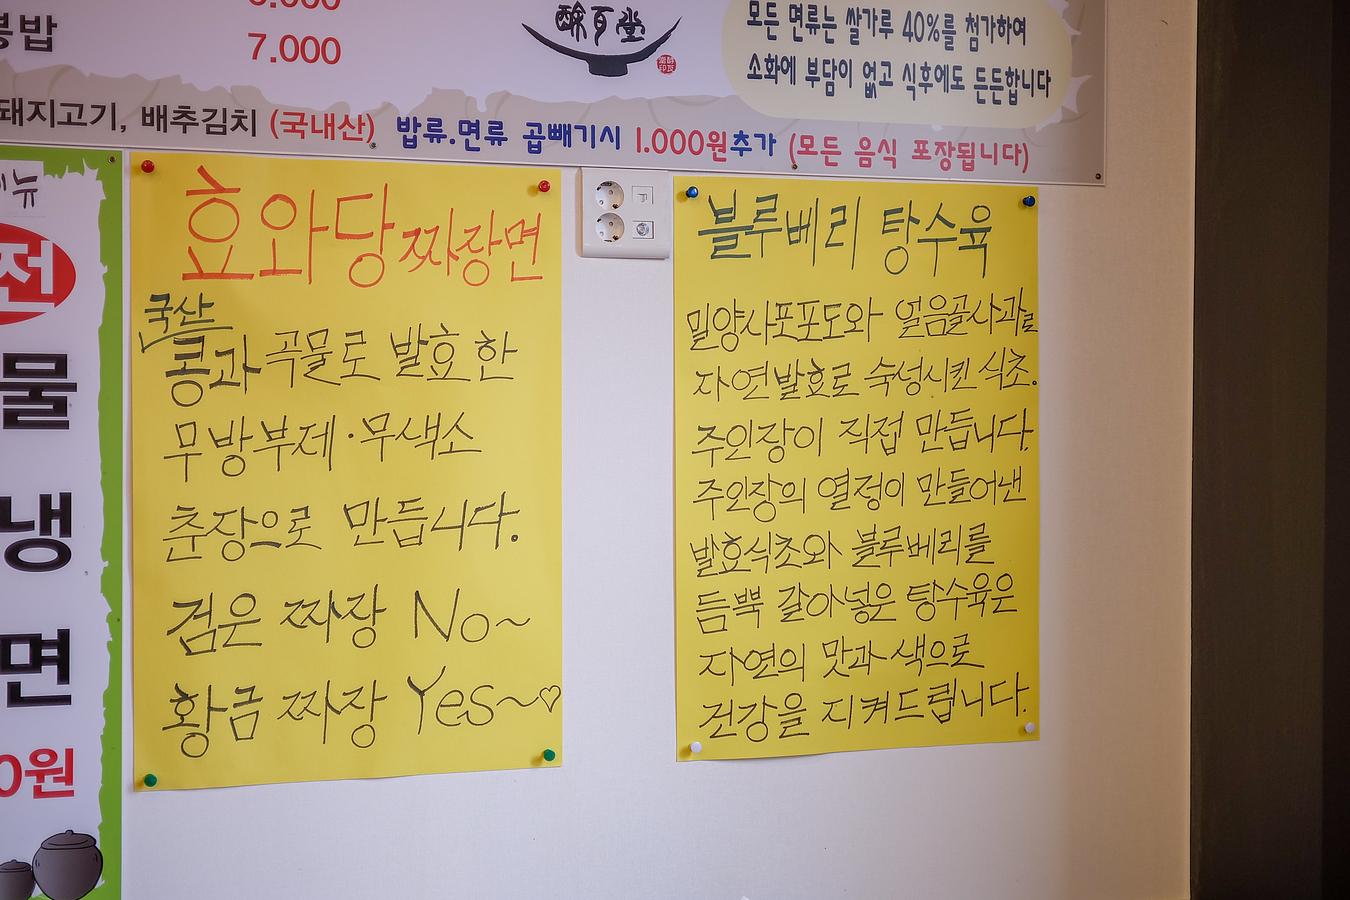 7.000
모든 면류는 쌀가루 40%를 첨가하여
소화에 부담이 없고 식후에도 든든합니다
돼지고기, 배추김치 (국내산) 밥류.면류 곱빼기시 1.000원추가 (모든 음식 포장됩니다)
효와당 짜장면
국산
콩과 곡물로 발효한
무방부제·무색소
춘장으로 만듭니다.
검은 짜장 No~
황금 짜장 Yes~♡
블루베리 탕수육
밀양사포포도와 얼음골사과를
자연발효로 숙성시킨 식초.
주인장이 직접 만듭니다.
주인장의 열정이 만들어낸
발효식초와 블루베리를
듬뿍 갈아넣은 탕수육은
자연의 맛과 색으로
건강을 지켜드립니다.
전
물
냉
면
0원